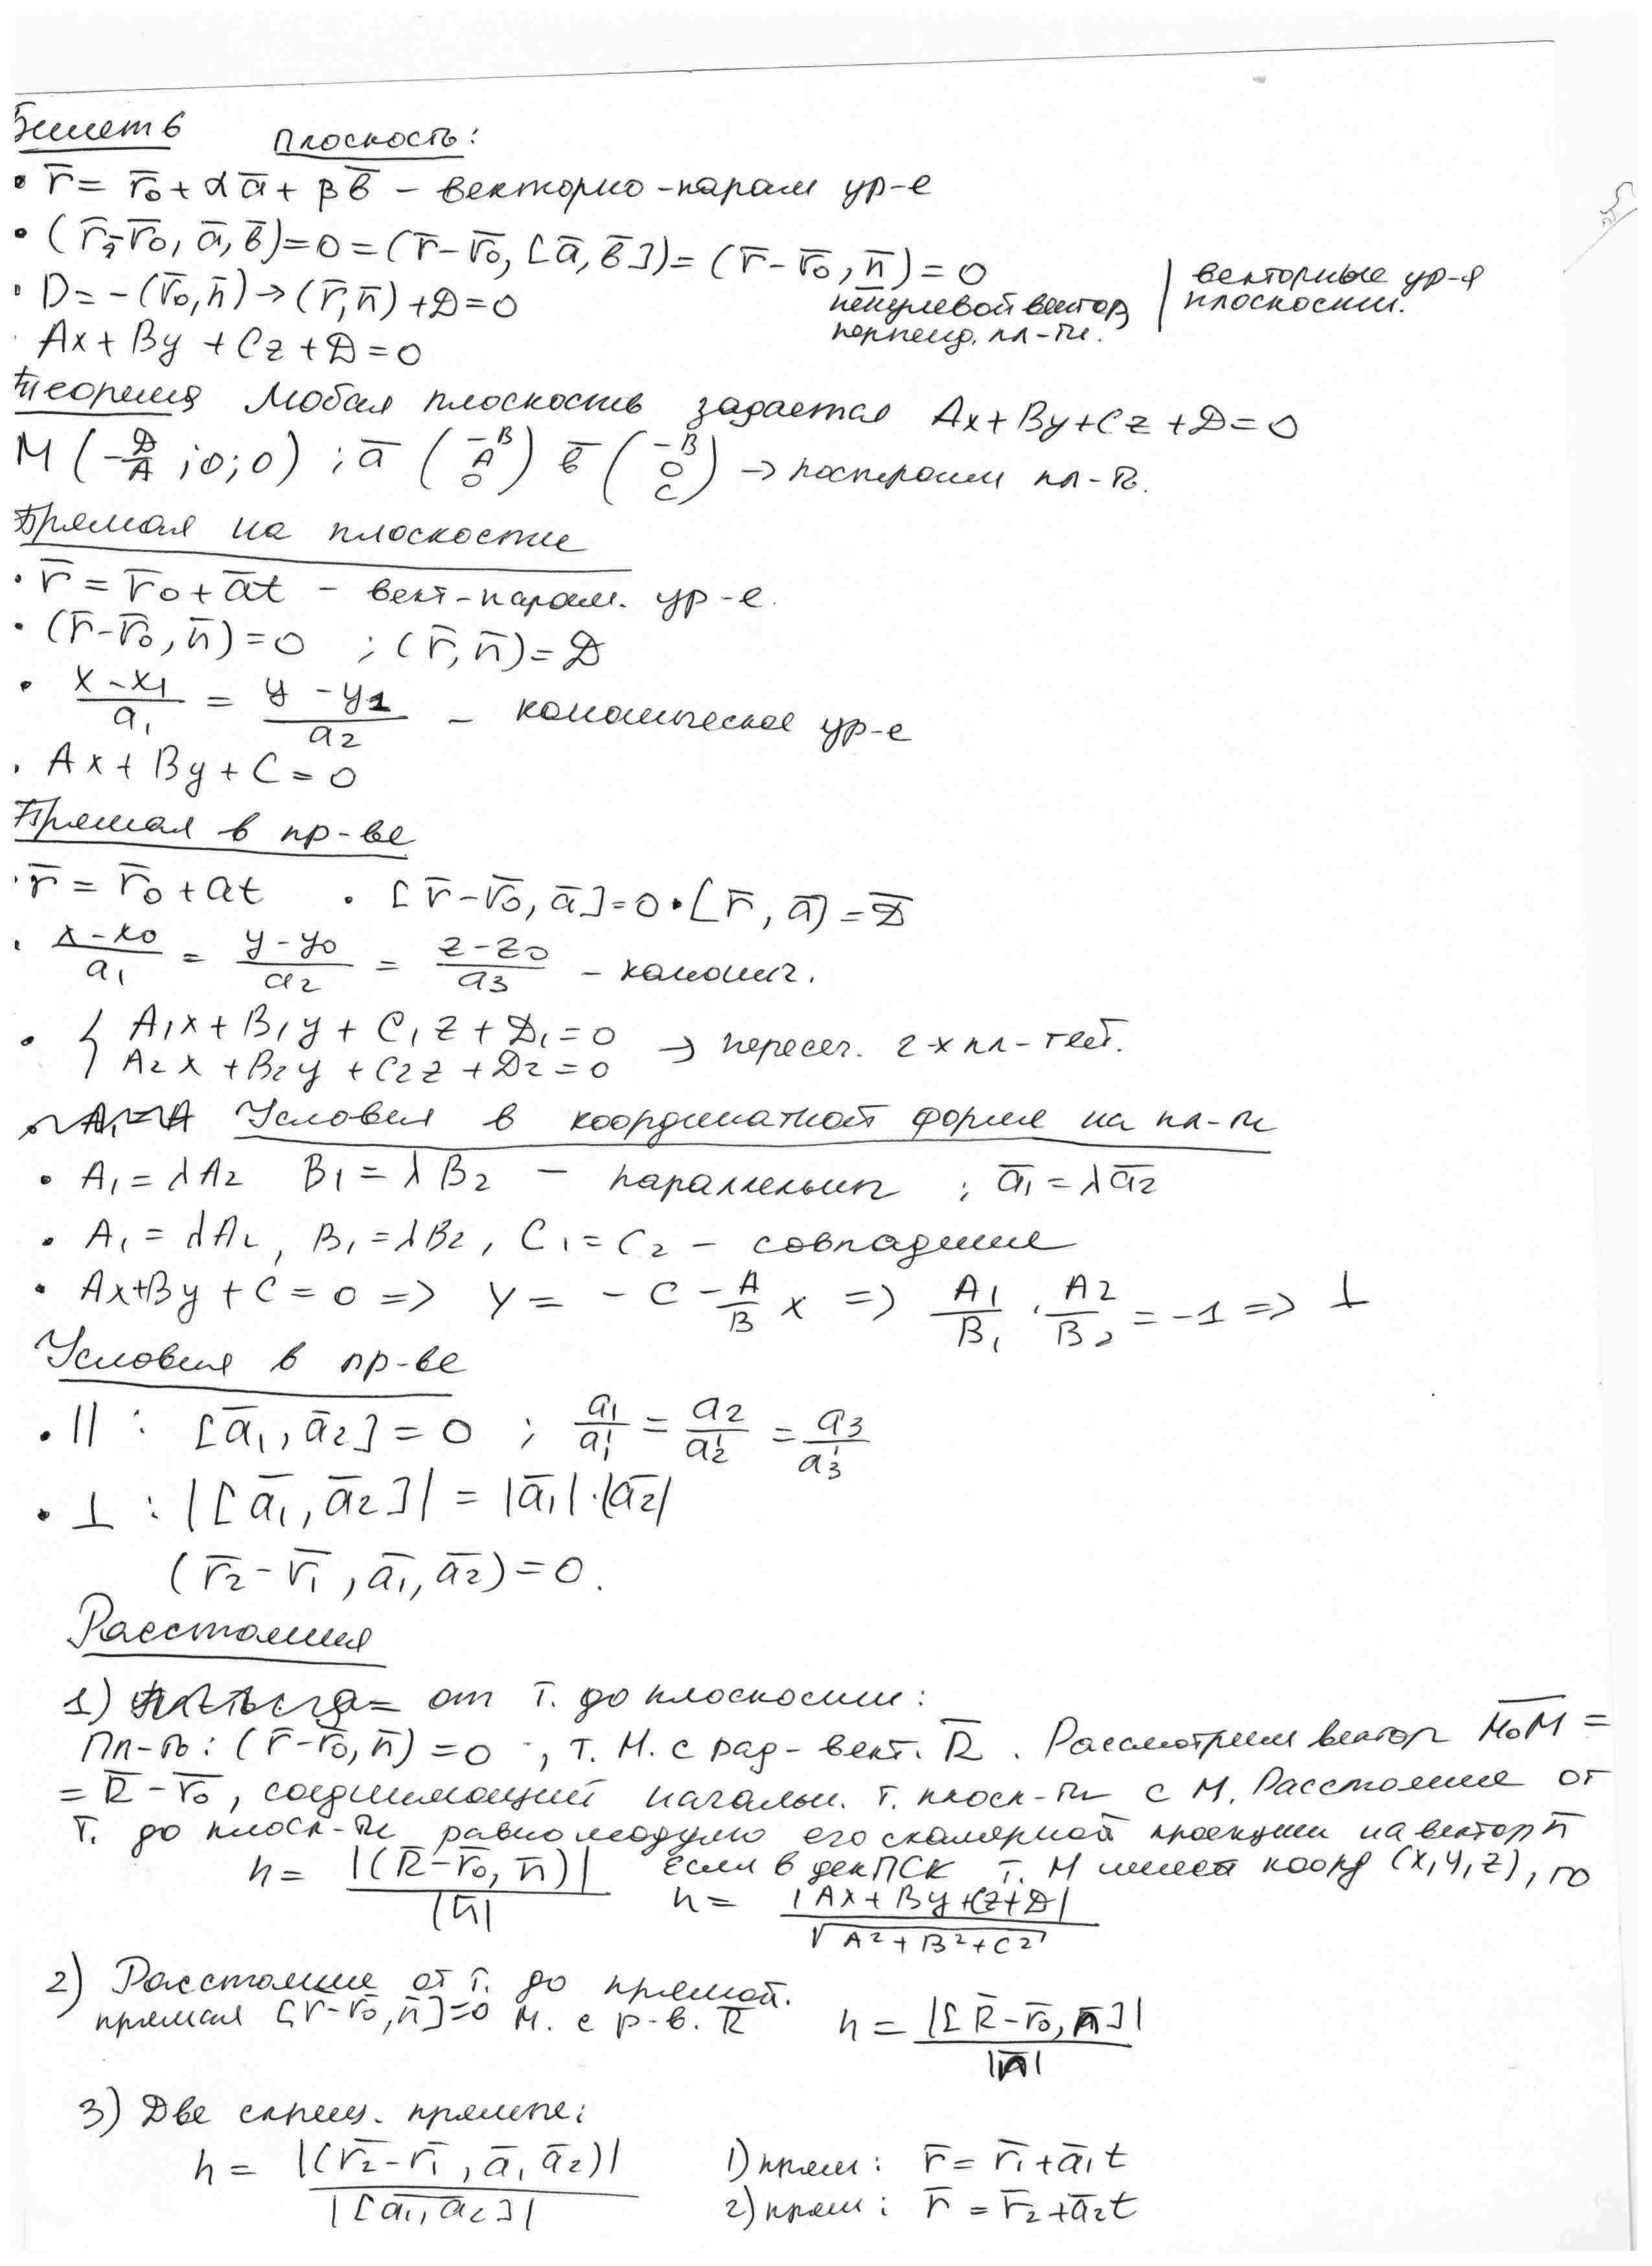 Билет 6 Плоскость:
• r̅ = r̅₀ + αa̅ + βв̅ – векторно-парам ур-е
• (r̅-r̅₀, a̅, в̅)=0 = (r̅-r̅₀, [a̅, в̅]) = (r̅-r̅₀, n̅) = 0
ненулевой вектор
перпенд. пл-ти.
векторные ур-я
плоскости.
• D = -(r̅₀, n̅) → (r̅, n̅) + D = 0
• Ax + By + Cz + D = 0
Теорема Любая плоскость задается Ax + By + Cz + D = 0
M (-D/A ; 0; 0) ; a̅ (-B A 0) в̅ (-B 0 C) → построим пл-ть.
Прямая на плоскости
• r̅ = r̅₀ + a̅t – вект-парам. ур-е.
• (r̅-r̅₀, n̅) = 0 ; (r̅, n̅) = D
• (x - x₁)/a₁ = (y - y₁)/a₂ – каноническое ур-е
• Ax + By + C = 0
Прямая в пр-ве
• r̅ = r̅₀ + at • [r̅-r̅₀, a̅] = 0 • [r̅, a̅] = D̅
• (x-x₀)/a₁ = (y-y₀)/a₂ = (z-z₀)/a₃ – канонич.
• { A₁x + B₁y + C₁z + D₁ = 0
A₂x + B₂y + C₂z + D₂ = 0 → пересеч. 2-х пл-тей.
Условия в координатной форме на пл-ти
• A₁ = λA₂ B₁ = λB₂ – параллельны ; a̅₁ = λa̅₂
• A₁ = λA₂, B₁ = λB₂, C₁ = C₂ – совпадение
• Ax+By + C = 0 => y = - C - A/B x => A₁/B₁ · A₂/B₂ = -1 => ⊥
Условия в пр-ве
• || : [a̅₁, a̅₂] = 0 ; a₁/a₁' = a₂/a₂' = a₃/a₃'
• ⊥ : |[a̅₁, a̅₂]| = |a̅₁|·|a̅₂|
(r̅₂ - r̅₁, a̅₁, a̅₂) = 0.
Расстояния
1) от т. до плоскости:
Пл-ть: (r̅-r̅₀, n̅) = 0 , т. М. с рад-вект. R̅. Рассмотрим вектор M₀M =
= R̅ - r̅₀, соединяющий начальн. т. плоск-ти с М. Расстояние от
т. до плоск-ти равно модулю его скалярной проекции на вектор n̅
h = |(R̅-r̅₀, n̅)|/|n̅| если в дек ПСК т. М имеет коорд (x, y, z), то
h = |Ax + By + Cz + D|/√(A² + B² + C²)
2) Расстояние от т. до прямой.
прямая [r̅-r̅₀, n̅]=0 М. с р-в. R̅ h = |[R̅-r̅₀, n̅]|/|n̅|
3) Две скрещ. прямые:
h = |(r̅₂-r̅₁, a̅₁ a̅₂)|/|[a̅₁, a̅₂]| 1) прям: r̅ = r̅₁ + a̅₁t
2) прям: r̅ = r̅₂ + a̅₂t